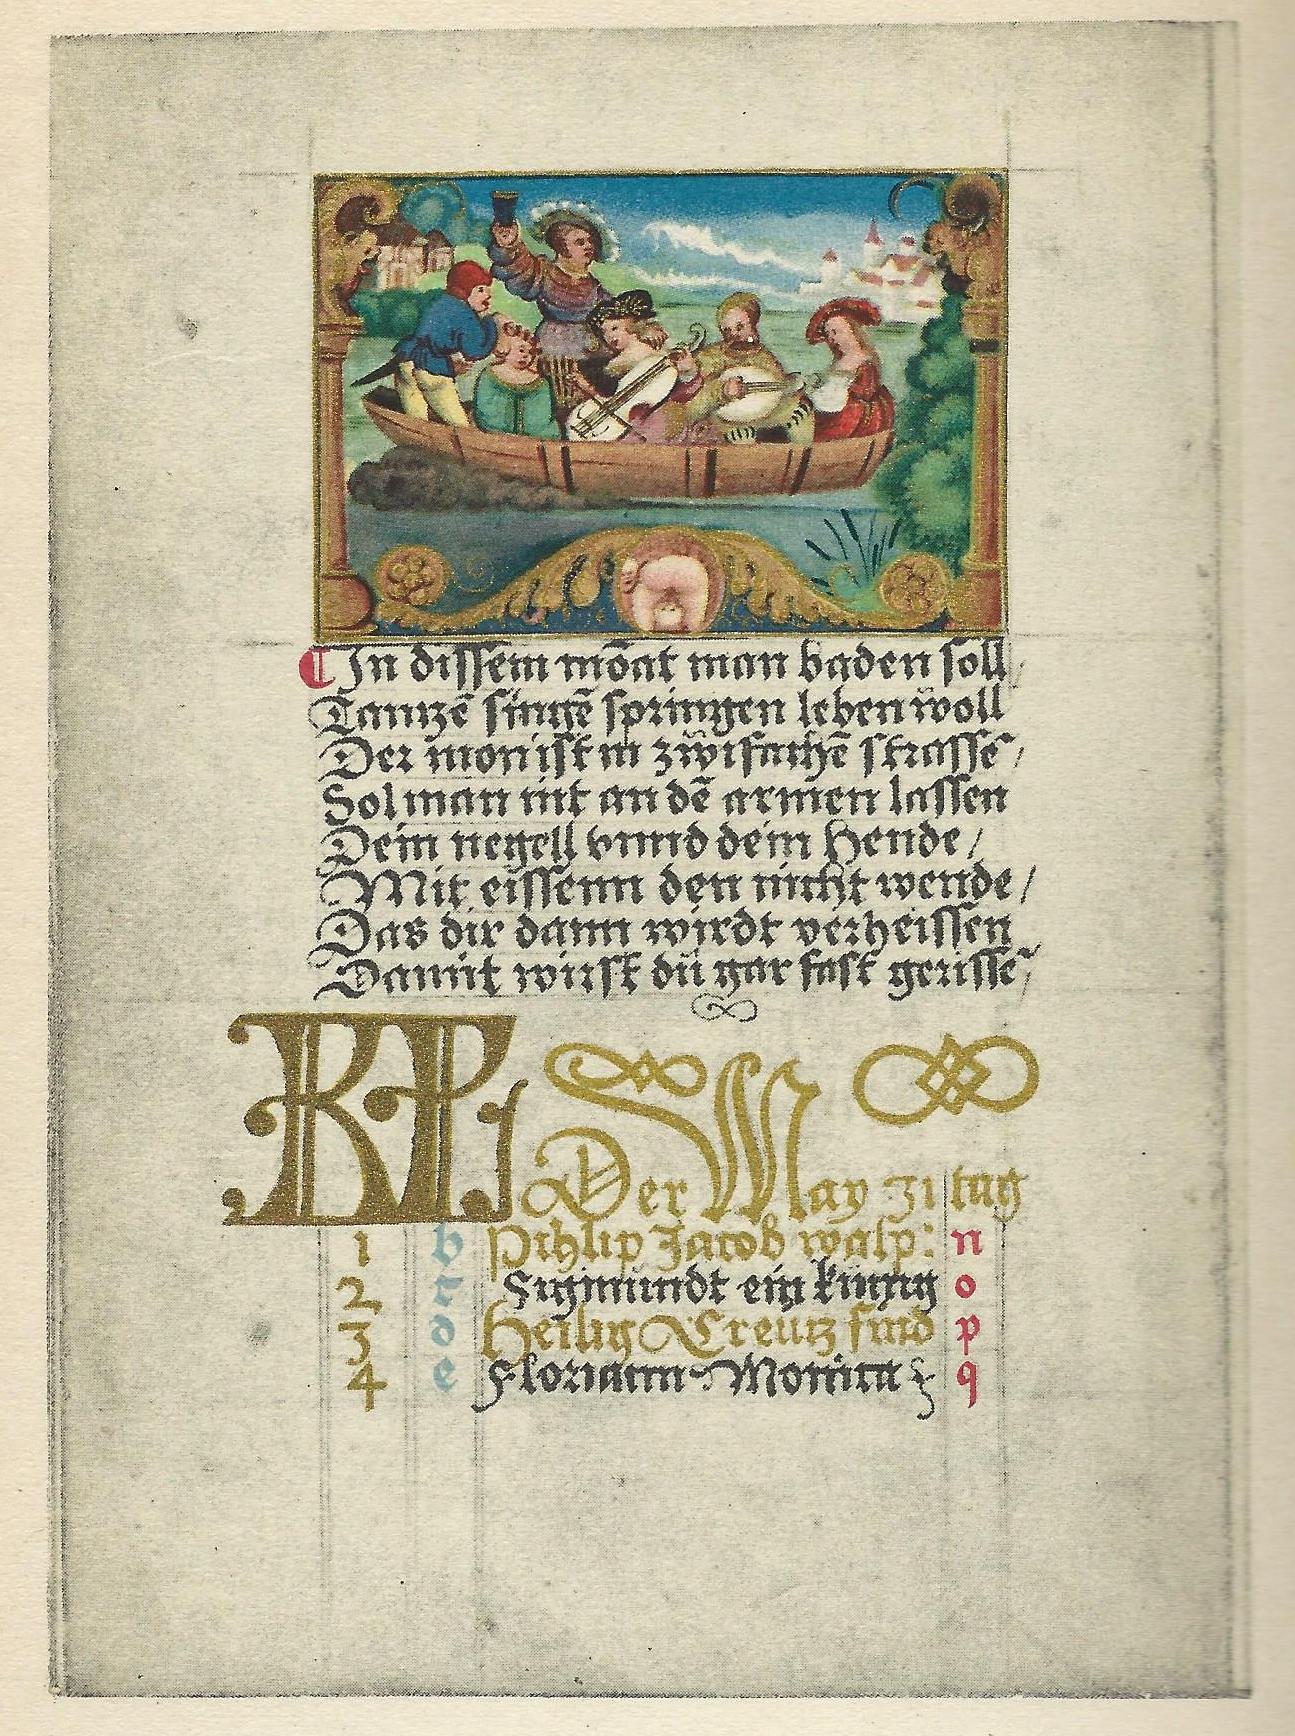 In dissem mōat man baden soll
Tantzē singē springen leben woll
Der mon ist in zwifachē strasse
Sol man nit an dē armen lassen
Dein negell vnnd dein Hende /
Mit eissenn den nicht wende /
Das dir dann wirdt verheissen
Damit wirst dü gar fast gerissē /
KL Der May 31 tag
1 b Pihlip Jacob walp: n
2 c Sigmündt ein künig o
3 d Heilig Creutz find p
4 e Floriann Monica q